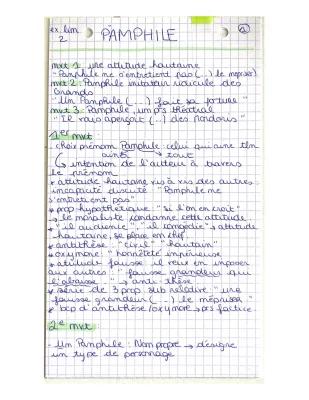 ex. lin. 2
PAMPHILE
mvt 1: une attitude hautaine
"Pamphile ne s'entretient pas (...) le mépriser"
mvt 2: Pamphile imitateur ridicule des
Grands
"Un Pamphile (...) fait sa fortune"
mvt 3: Pamphile, theâtral
"Il vais aperçoit (...) des Mandoris"
1er mvt:
- choix prénom Pamphile: celui qui aime tlm
aime → tout
↳ intention de l'auteur à travers
le prénom
* attitude hautaine vis à vis des autres
incapable discuté "Pamphile ne
s'entretient pas"
* prop hypothétique: "si l'on en croit"
→ le moraliste condamne cette attitude
* "il audience", "il congédie" → attitude
hautaine, se place en chef.
* antithèse: "civil" "hautain"
* oxymore: "honnêteté impérieuse"
* attitude fausse il veut en imposer
aux autres: "fausse grandeur qui
l'abaisse" → anti-thèse
* série de 3 prop. sub relative "une
fausse grandeur (...) le mépriser"
* bcp d'antithèse/oxymore → prs factice
2e mvt:
- Un Pamphile: Nom propre → désigne
un type de personnage